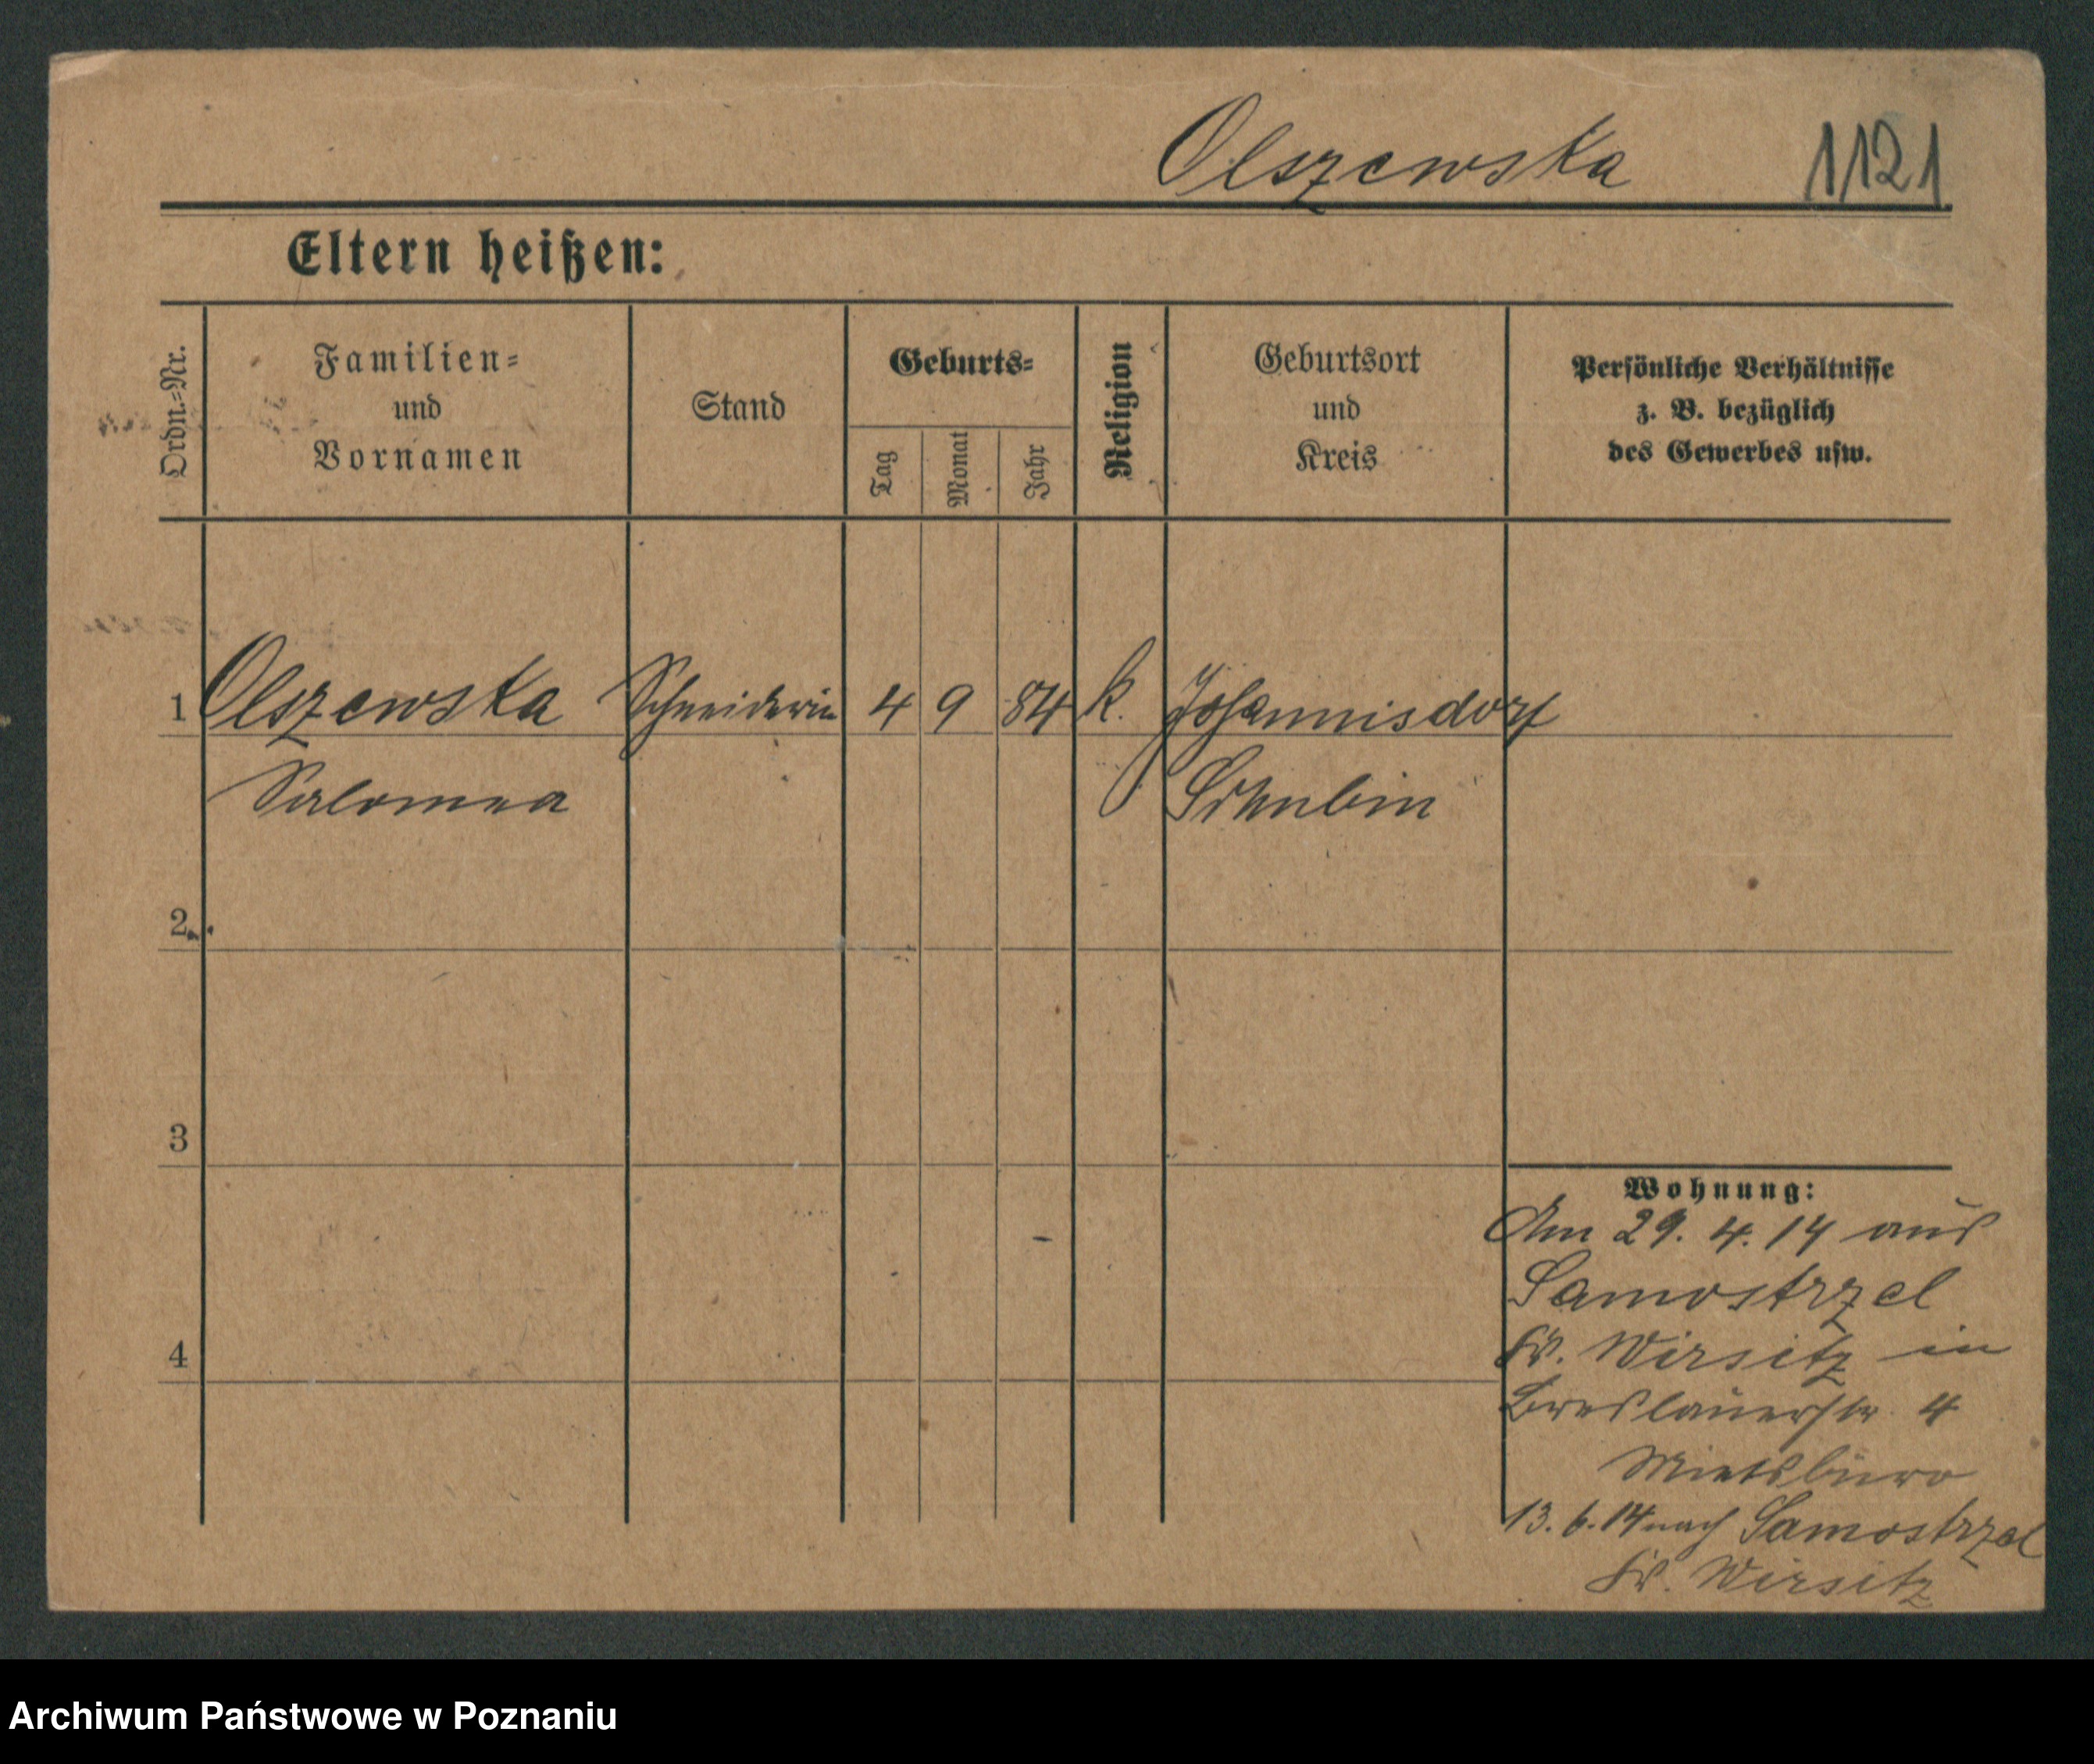 Olszewska 1121
Eltern heißen:
Ordn.=Nr.
Familien=
und
Vornamen
Stand
Geburts=
Tag
Monat
Jahr
Religion
Geburtsort
und
Kreis
Persönliche Verhältnisse
z. B. bezüglich
des Gewerbes usw.
1 Olszewska Schneiderin 4 9 84 k. Johannisdorf
Salomea Schubin
2
3
4
Wohnung:
Am 29. 4. 14 aus
Samostrzel
Kr. Wirsitz in
Breslauerstr. 4
Mietsbüro
13. 6. 14 nach Samostrzel
Kr. Wirsitz
Archiwum Państwowe w Poznaniu